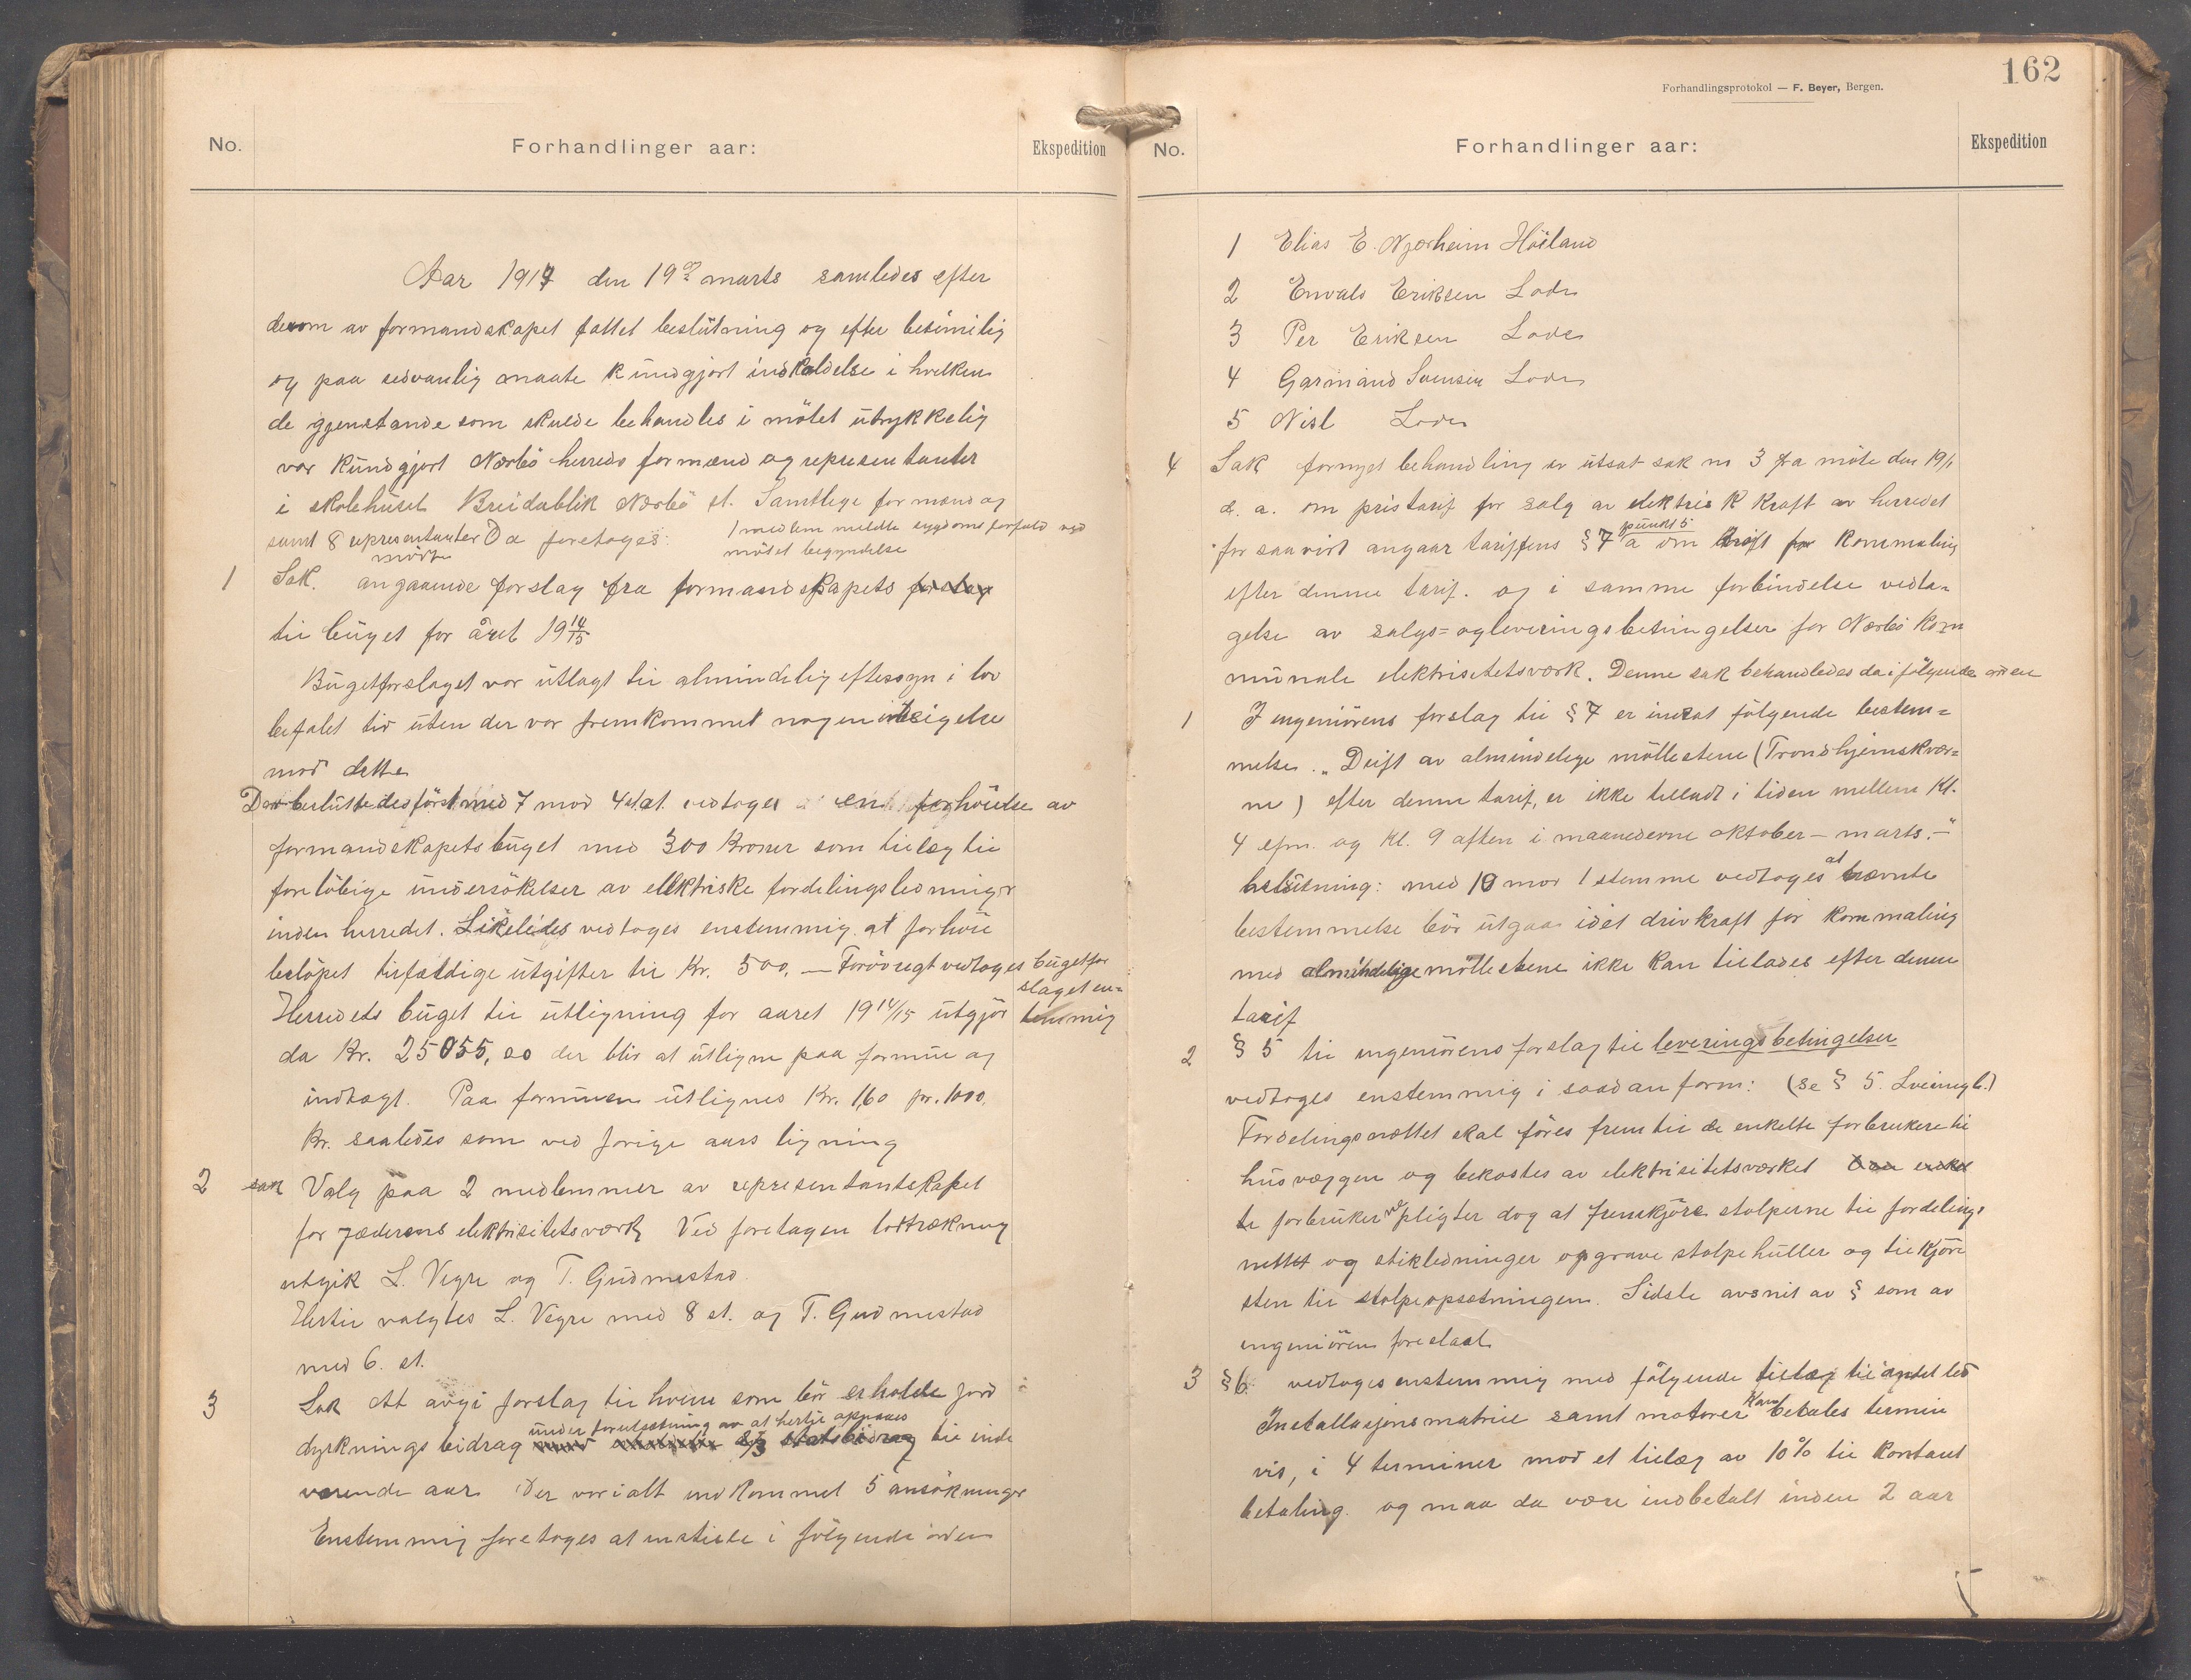 No.
Forhandlinger aar:
Ekspedition
Aar 1914 den 19de marts samledes efter
derom av formandskapet fattet beslutning og efter betimelig
og paa sedvanlig maate kundgjort indkaldelse i hvilken
de gjenstande som skulde behandles i mötet utrykkelig
var kundgjort Nærbö herreds formænd og representanter
i skolehuset Breidablik Nærbö st. Samtlege formænd og
samt 8 representanter mödte Da foretoges: 1 medlem meldte sygdoms forfald ved
mötet begyndelse
1 Sak. angaaende forslag fra formandskapets forslag
til buget for året 19 14/15
Bugetforslaget var utlagt til almindelig eftersyn i lov
befalet tid uten der var fremkommet nogen indsigelse
mod dette
Der besluttedes först med 7 mod 4 st. at vedtages en forhöielse av
formandskapets buget med 300 kroner som tilleg til
forelöbige undersökelser av elektriske fordelingsledninger
inden herredet. Likeledes vedtoges enstemmig at forhöie
belöpet tilfældige utgifter til Kr. 500,— Forövregt vedtoges bugetfor
slaget en=
stemmig
Herredets buget til utligning for aaret 19 14/15 utgjör
da Kr. 25055,00 der blir at utligne paa formue og
indtægt. Paa formuen utlignes Kr. 1,60 pr. 1000.
Kr. saaledes som ved forige aars ligning
2 sak Valg paa 2 medlemmer av representantskapet
for Jæderens elektrisitetsverk Ved foretagen lottrækning
utgik L. Vigre og T. Gudmestad
Hertil valgtes L. Vigre med 8 st. og T. Gudmestad
med 6. st.
3 Sak At avgi forslag til hvem som bör erholde jord
under forutsætning av at hertil oppnaaes
dyrkningsbidrag 2/3 statsbidrag til inde
værende aar. Der var ialt indkommet 5 ansökninger
Enstemmig foretoges at indstille i fölgende orden
162
Forhandlingsprotokol — F. Beyer, Bergen.
No.
Forhandlinger aar:
Ekspedition
1 Elias E. Njærheim Höiland
2 Envald Eriksen Lode
3 Per Eriksen Lode
4 Garmand Svensen Lode
5 Nisl Lode
4 Sak fornyet behandling av utsat sak no 3 fra möte den 19/1
d. a. om pristarif for salg av elektrisk kraft av herredet
for saavidt angaar tariffens § 7 a punkt 5 om drift for kornmaling
efter denne tarif. og i samme forbindelse vedta=
gelse av salgs= og leveringsbetingelser for Nærbö kom
munale elektrisitetsverk. Denne sak behandledes da i fölgende orden
1 I ingeniörens forslag til § 7 er indsat fölgende bestem=
melse. „Drift av almindelige möllestene (Trondhjemskvær=
ne) efter denne tarif, er ikke tilladt i tiden mellem Kl.
4 efm. og Kl. 9 aften i maanederne oktober — marts.—"
beslutning: med 10 mod 1 stemme vedtoges at nævnte
bestemmelse bör utgaa idet drivkraft for kornmaling
med almindelige möllestene ikke kan tillades efter denne
tarif
2 § 5 til ingeniörens forslag til leveringsbetingelser
vedtoges enstemmig i saadan form: (Se § 5. Leveringb.)
Fordelingsnettet skal föres frem til de enkelte forbrukere til
husvæggen og bekostes av elektrisitetsverket Den enkel
te forbruker ne pligter dog at fremkjöre stolperne til fordelings
nettet og stikledninger opgrave stolpehuller og tilkjöre
sten til stolpeopsetningen. Sidste avsnit av § som av
ingeniören foreslaat
3 § 6 vedtoges enstemmig med fölgende tilleg til andet led
Installasjonsmatriel samt motorer kan betales termin
vis, i 4 terminer mod et tilleg av 10% til kontant
betaling. og maa da være indbetalt inden 2 aar